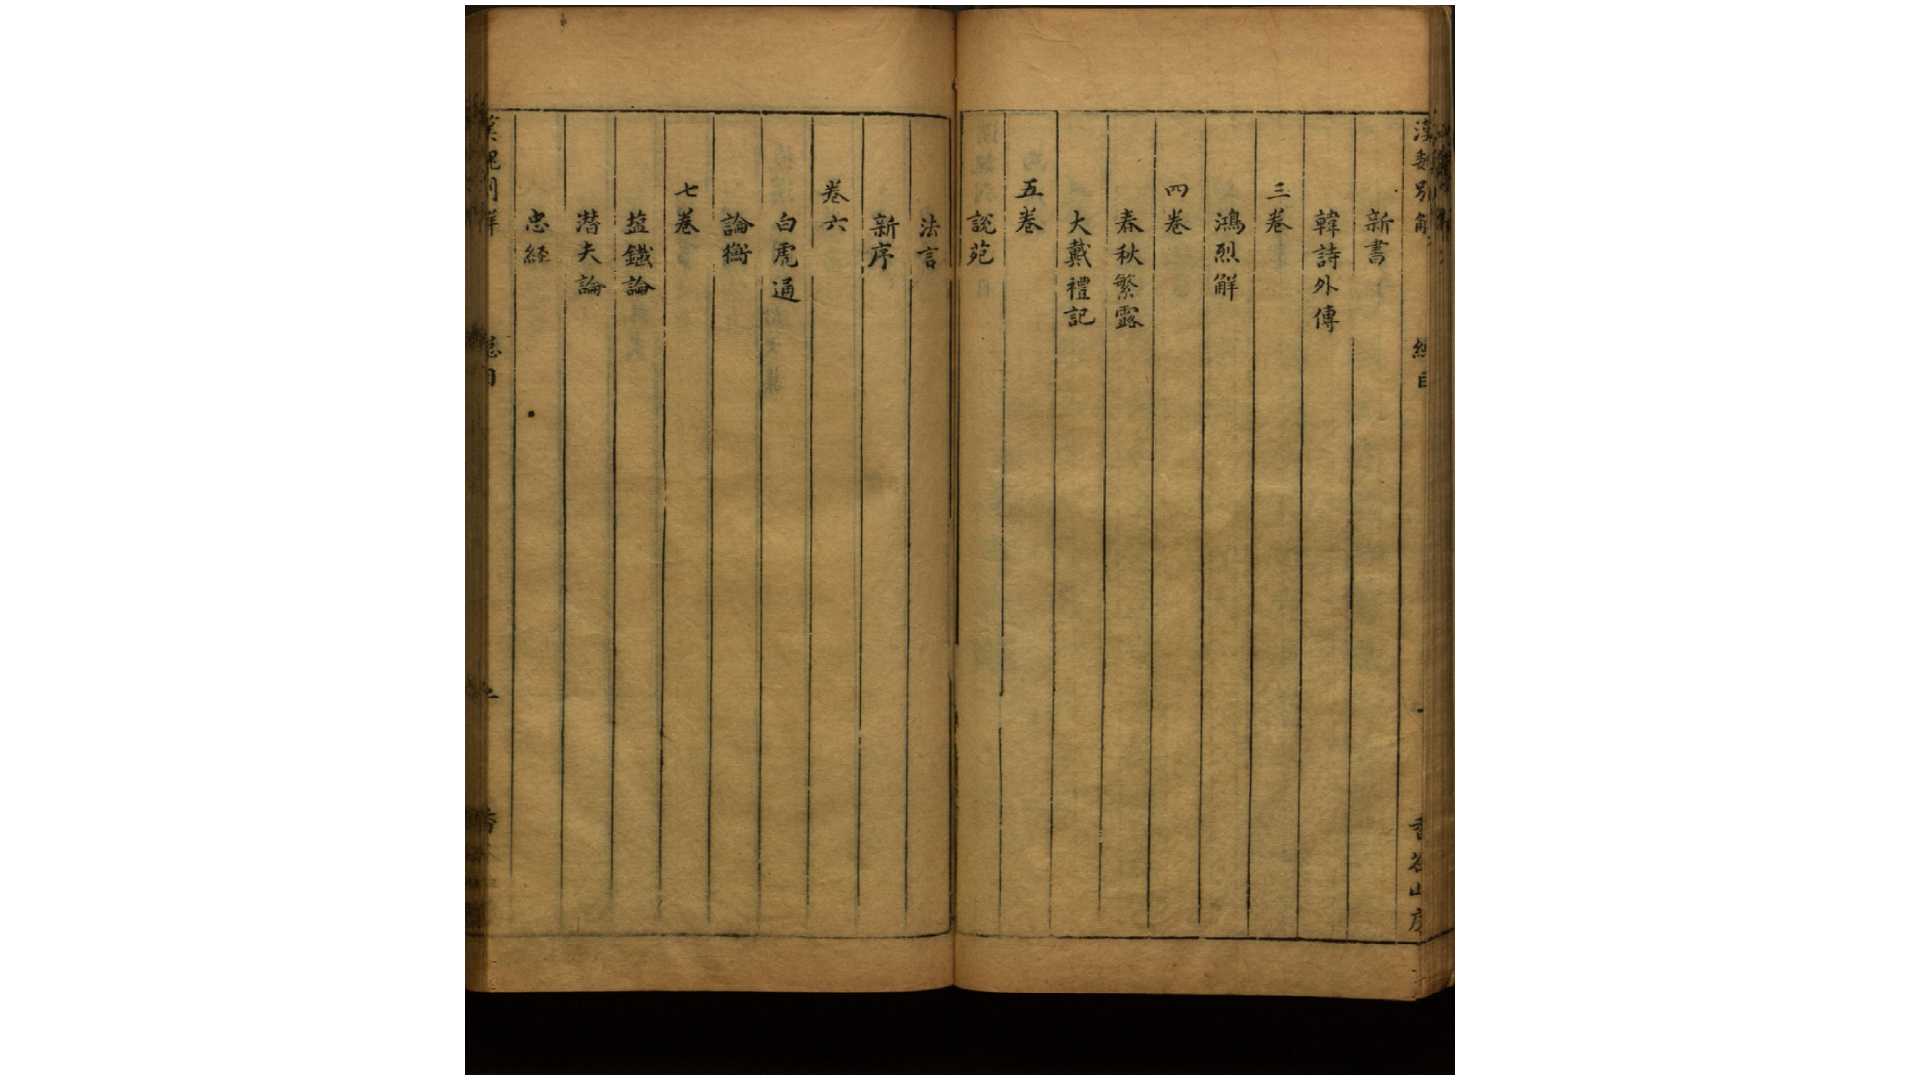 漢魏別解 總目 一 香谷山房
新書
韓詩外傳
三卷
鴻烈解
四卷
春秋繁露
大戴禮記
五卷
說苑
法言
新序
卷六
白虎通
論衡
七卷
盐鐵論
潜夫論
忠経